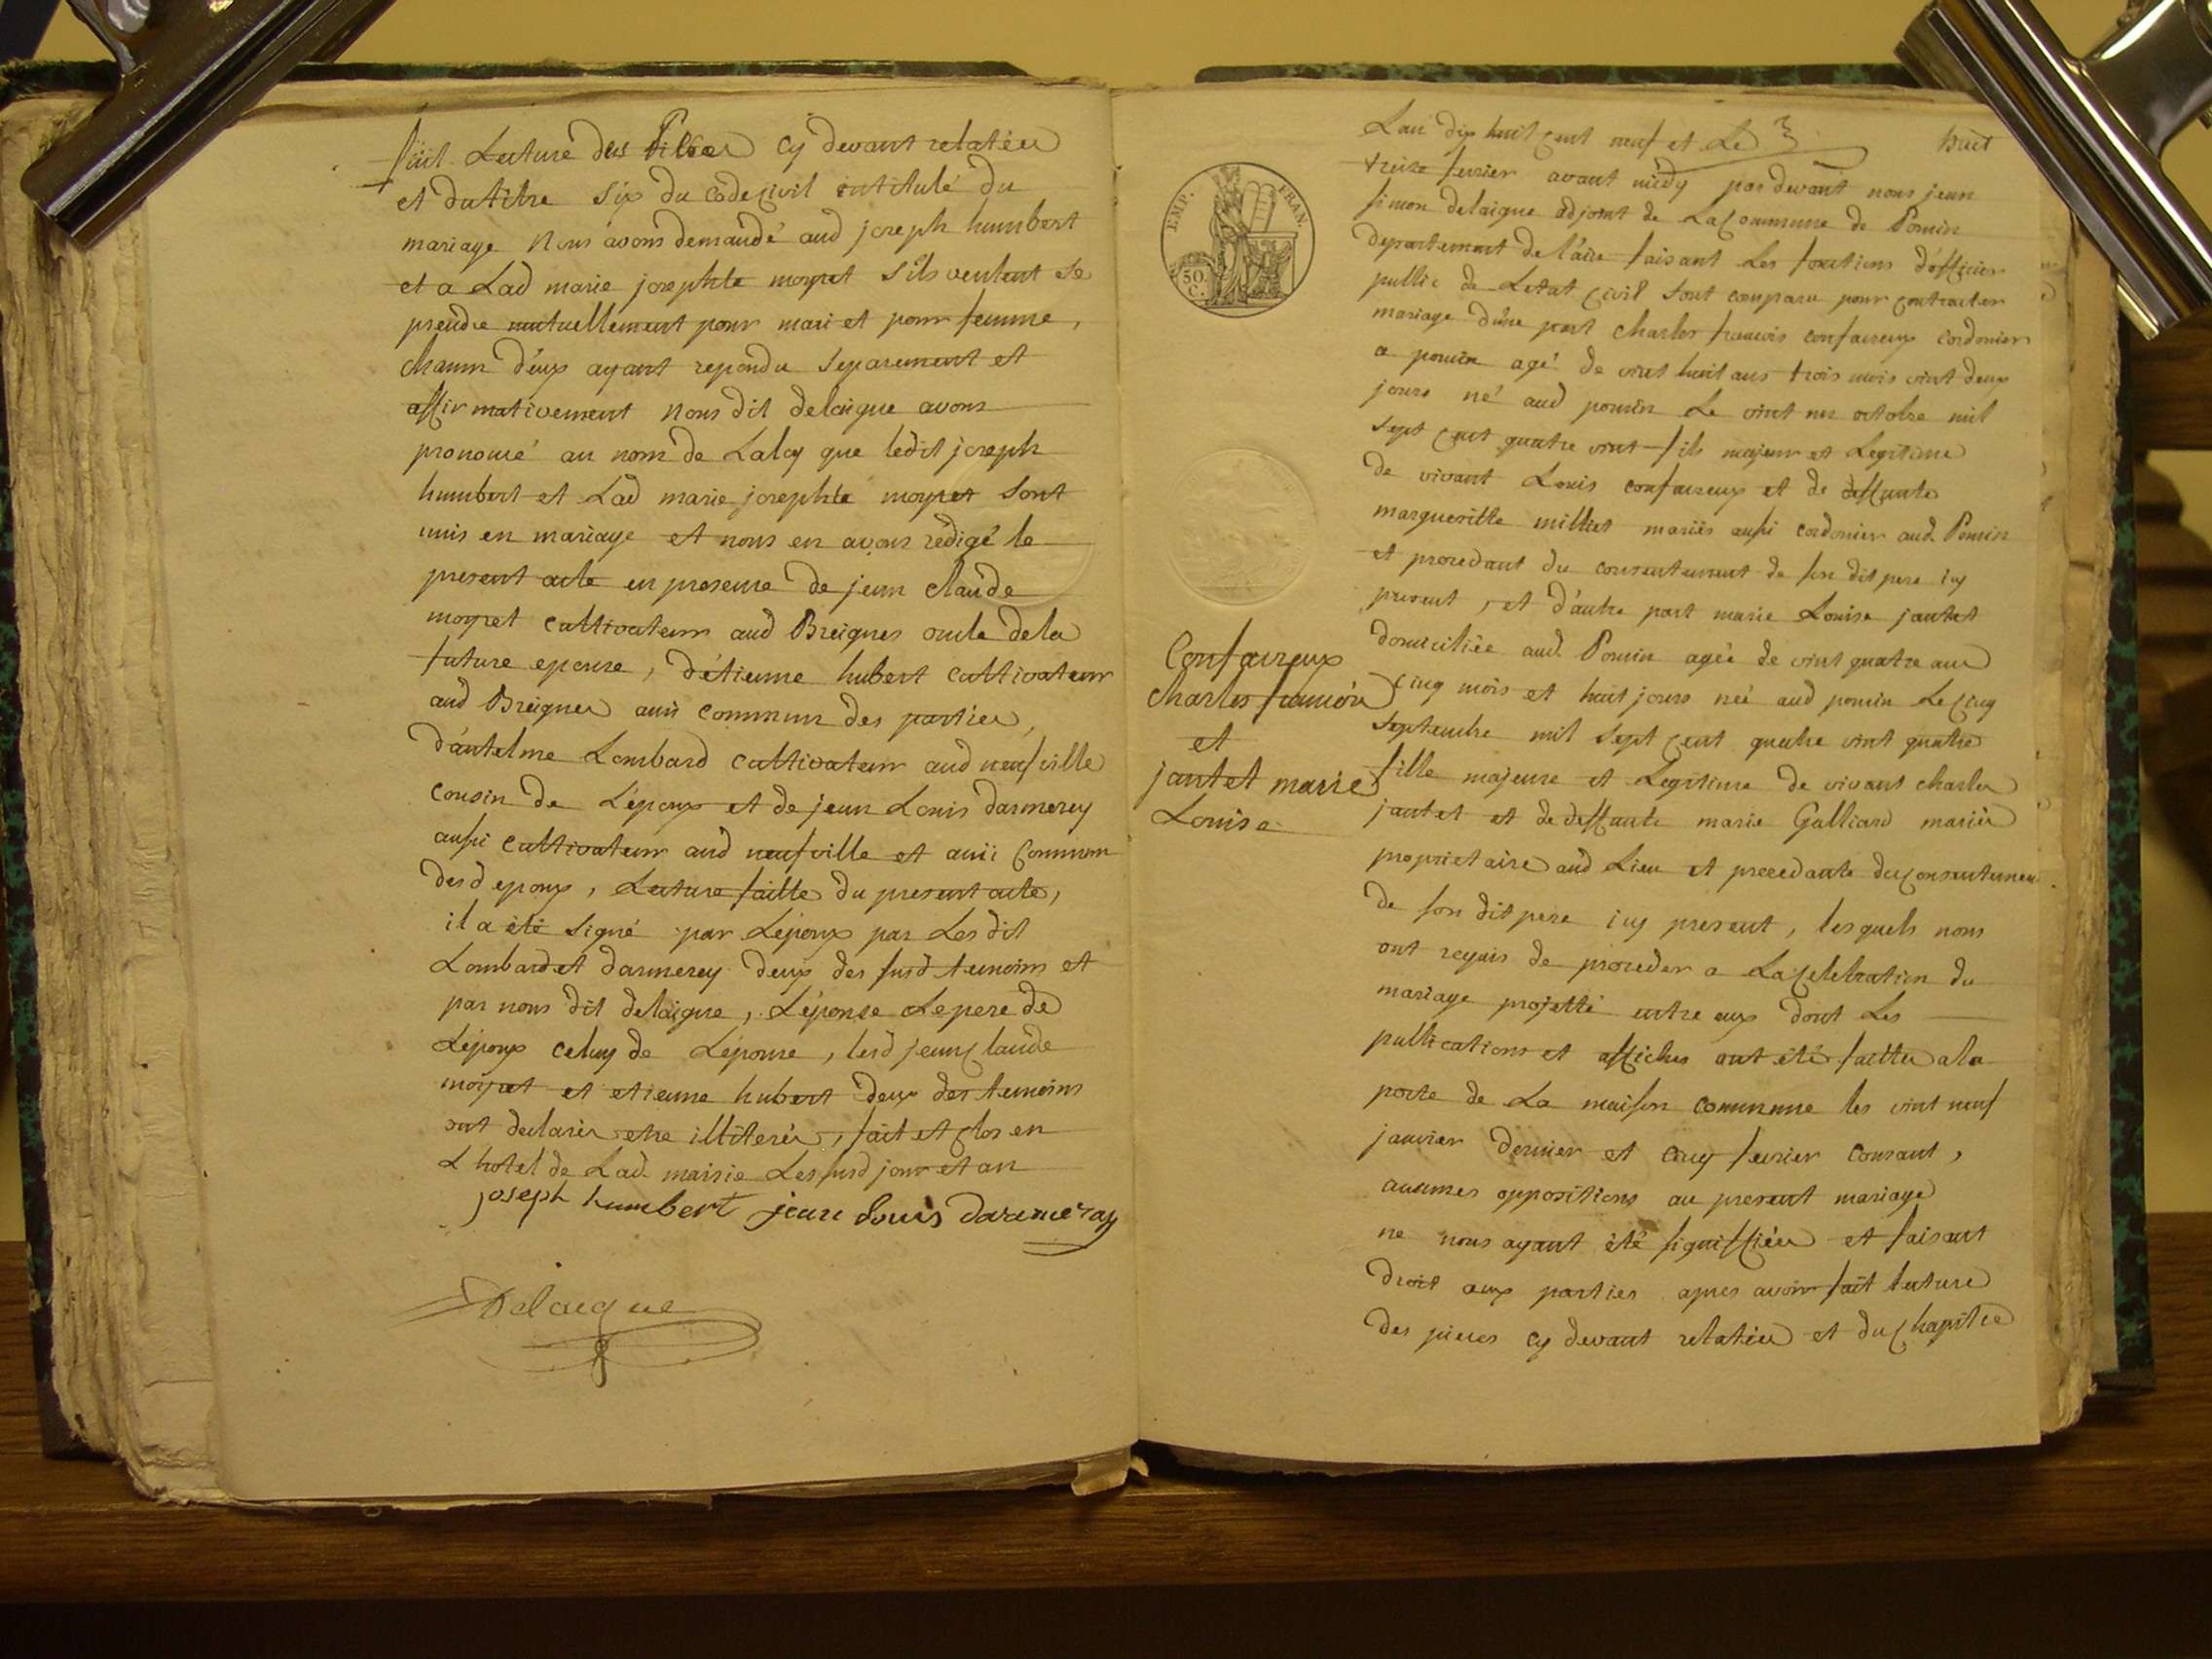 fait Lecture des Pieces cy devant relatées
et du titre six du code Civil intitulé du
mariage Nous avons demandé aud joseph humbert
et a Lad marie josephte moyret s'ils veulent se
prendre mutuellement pour mari et pour femme,
chacun d'eux ayant repondu separement et
affirmativement nous dit delaigue avons
prononcé au nom de La loy que ledit joseph
humbert et Lad marie josephte moyret sont
unis en mariage et nous en avons redigé le
present acte en presence de jean claude
moyret cultivateur aud Breignes oncle de la
future epouse, d'étienne hubert cultivateur
aud Breignes ami commun des parties,
d'antelme Lombard cultivateur aud neufville
cousin de L'époux et de jean Louis darmerey
aussi cultivateur aud neufville et ami Commun
desd epoux, Lecture faitte du present acte,
il a été signé par L'époux par Les dit
Lombard et darmerey deux des susd temoins et
par nous dit delaigue, L'épouse Le pere de
L'époux celuy de L'épouse, lesd jean Claude
moyret et etienne hubert deux des temoins
ont declarés etre illiterés, fait et Clos en
L'hotel de Lad mairie Les susd jour et an
joseph humbert jean Louis daremeray
Delaigue
huit
EMP. FRAN.
50 C.
Confavreux
Charles francois
et
jantet marie
Louise
L'an dix huit Cent neuf et Le
treize fevrier avant midy par devant nous jean
simon delaigue adjoint de La Commune de Poncin
departement de l'ain faisant Les fonctions d'officier
public de L'etat Civil sont comparu pour Contracter
mariage d'une part charles francois confavreux cordonier
a poncin agé de vint huit ans trois mois vint deux
jours né aud poncin Le vint un octobre mil
sept Cent quatre vint fils majeur et Legitime
de vivant Louis confavreux et de deffunte
margueritte milliet mariés aussi cordonier aud Poncin
et procedant du consentement de son dit pere icy
present, et d'autre part marie Louise jantet
domiciliée aud Poncin agée de vint quatre ans
Cinq mois et huit jours née aud poncin Le Cinq
septembre mil sept Cent quatre vint quatre
fille majeure et Legitime de vivant charles
jantet et de deffunte marie Galliard mariés
proprietaire aud Lieu et procedante du Consentement
de son dit pere icy present, lesquels nous
ont requis de proceder a La Celebration du
mariage projetté entre eux dont Les
publications et affiches ont été faittes a la
porte de La maison commune les vint neuf
janvier dernier et cinq fevrier courant,
aucunes oppositions au present mariage
ne nous ayant été signiffiées et faisant
droit aux parties apres avoir fait lecture
des pieces cy devant relatées et du Chapitre